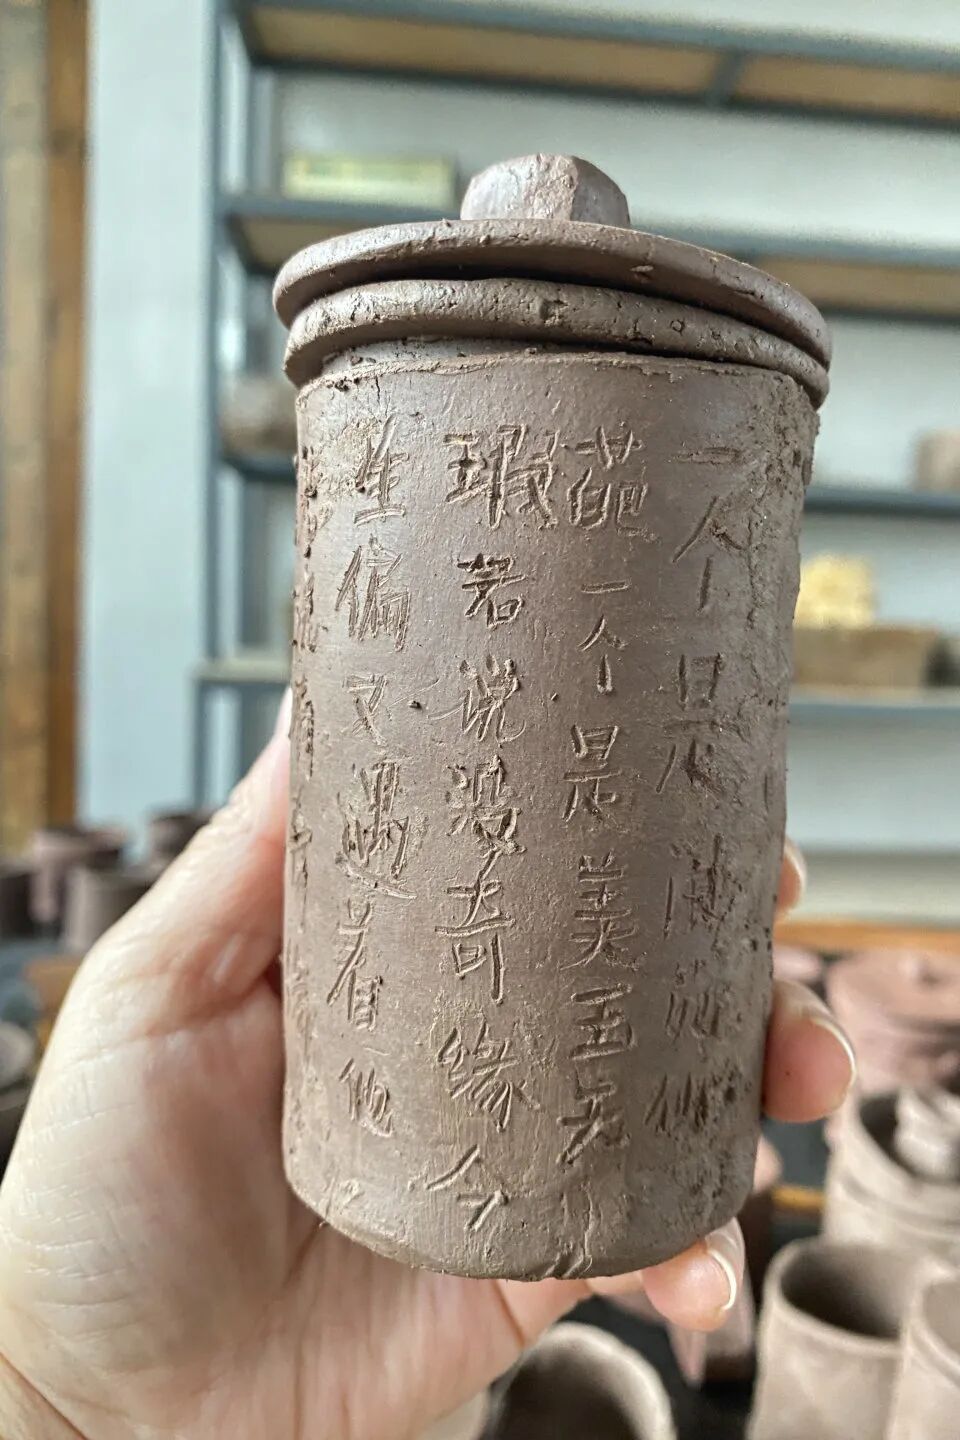 一个是阆苑仙
葩一个是美玉无
瑕若说没奇缘今
生偏又遇着他
若说有奇